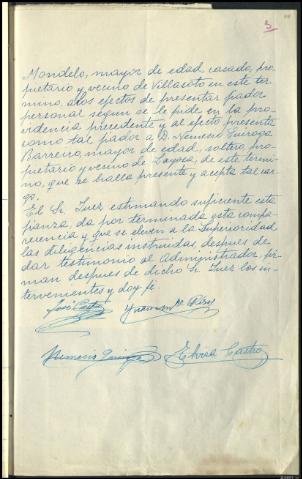 3
Mondelo, mayor de edad casado, pro-
pietario y vecino de Villasoto en este ter-
mino a los efectos de presentar fiador
personal segun se le pide en la pro-
videncia precedente y al efecto presenta
como tal fiador a D. Nemesio Quiroga
Barreiro, mayor de edad, soltero, pro-
pietario y vecino de Layosa, de este termi-
no, que se halla presente y acepta tal car-
go.
El Sr. Juez estimando suficiente esta
fianza, da por terminada esta compa-
recencia y que se eleven a la Superioridad
las diligencias instruidas, despues de
dar testimonio al Administrador, fir-
man despues de dicho Sr. Juez los in-
tervenientes y doy fé.
José
Nemesio Quiroga Castro